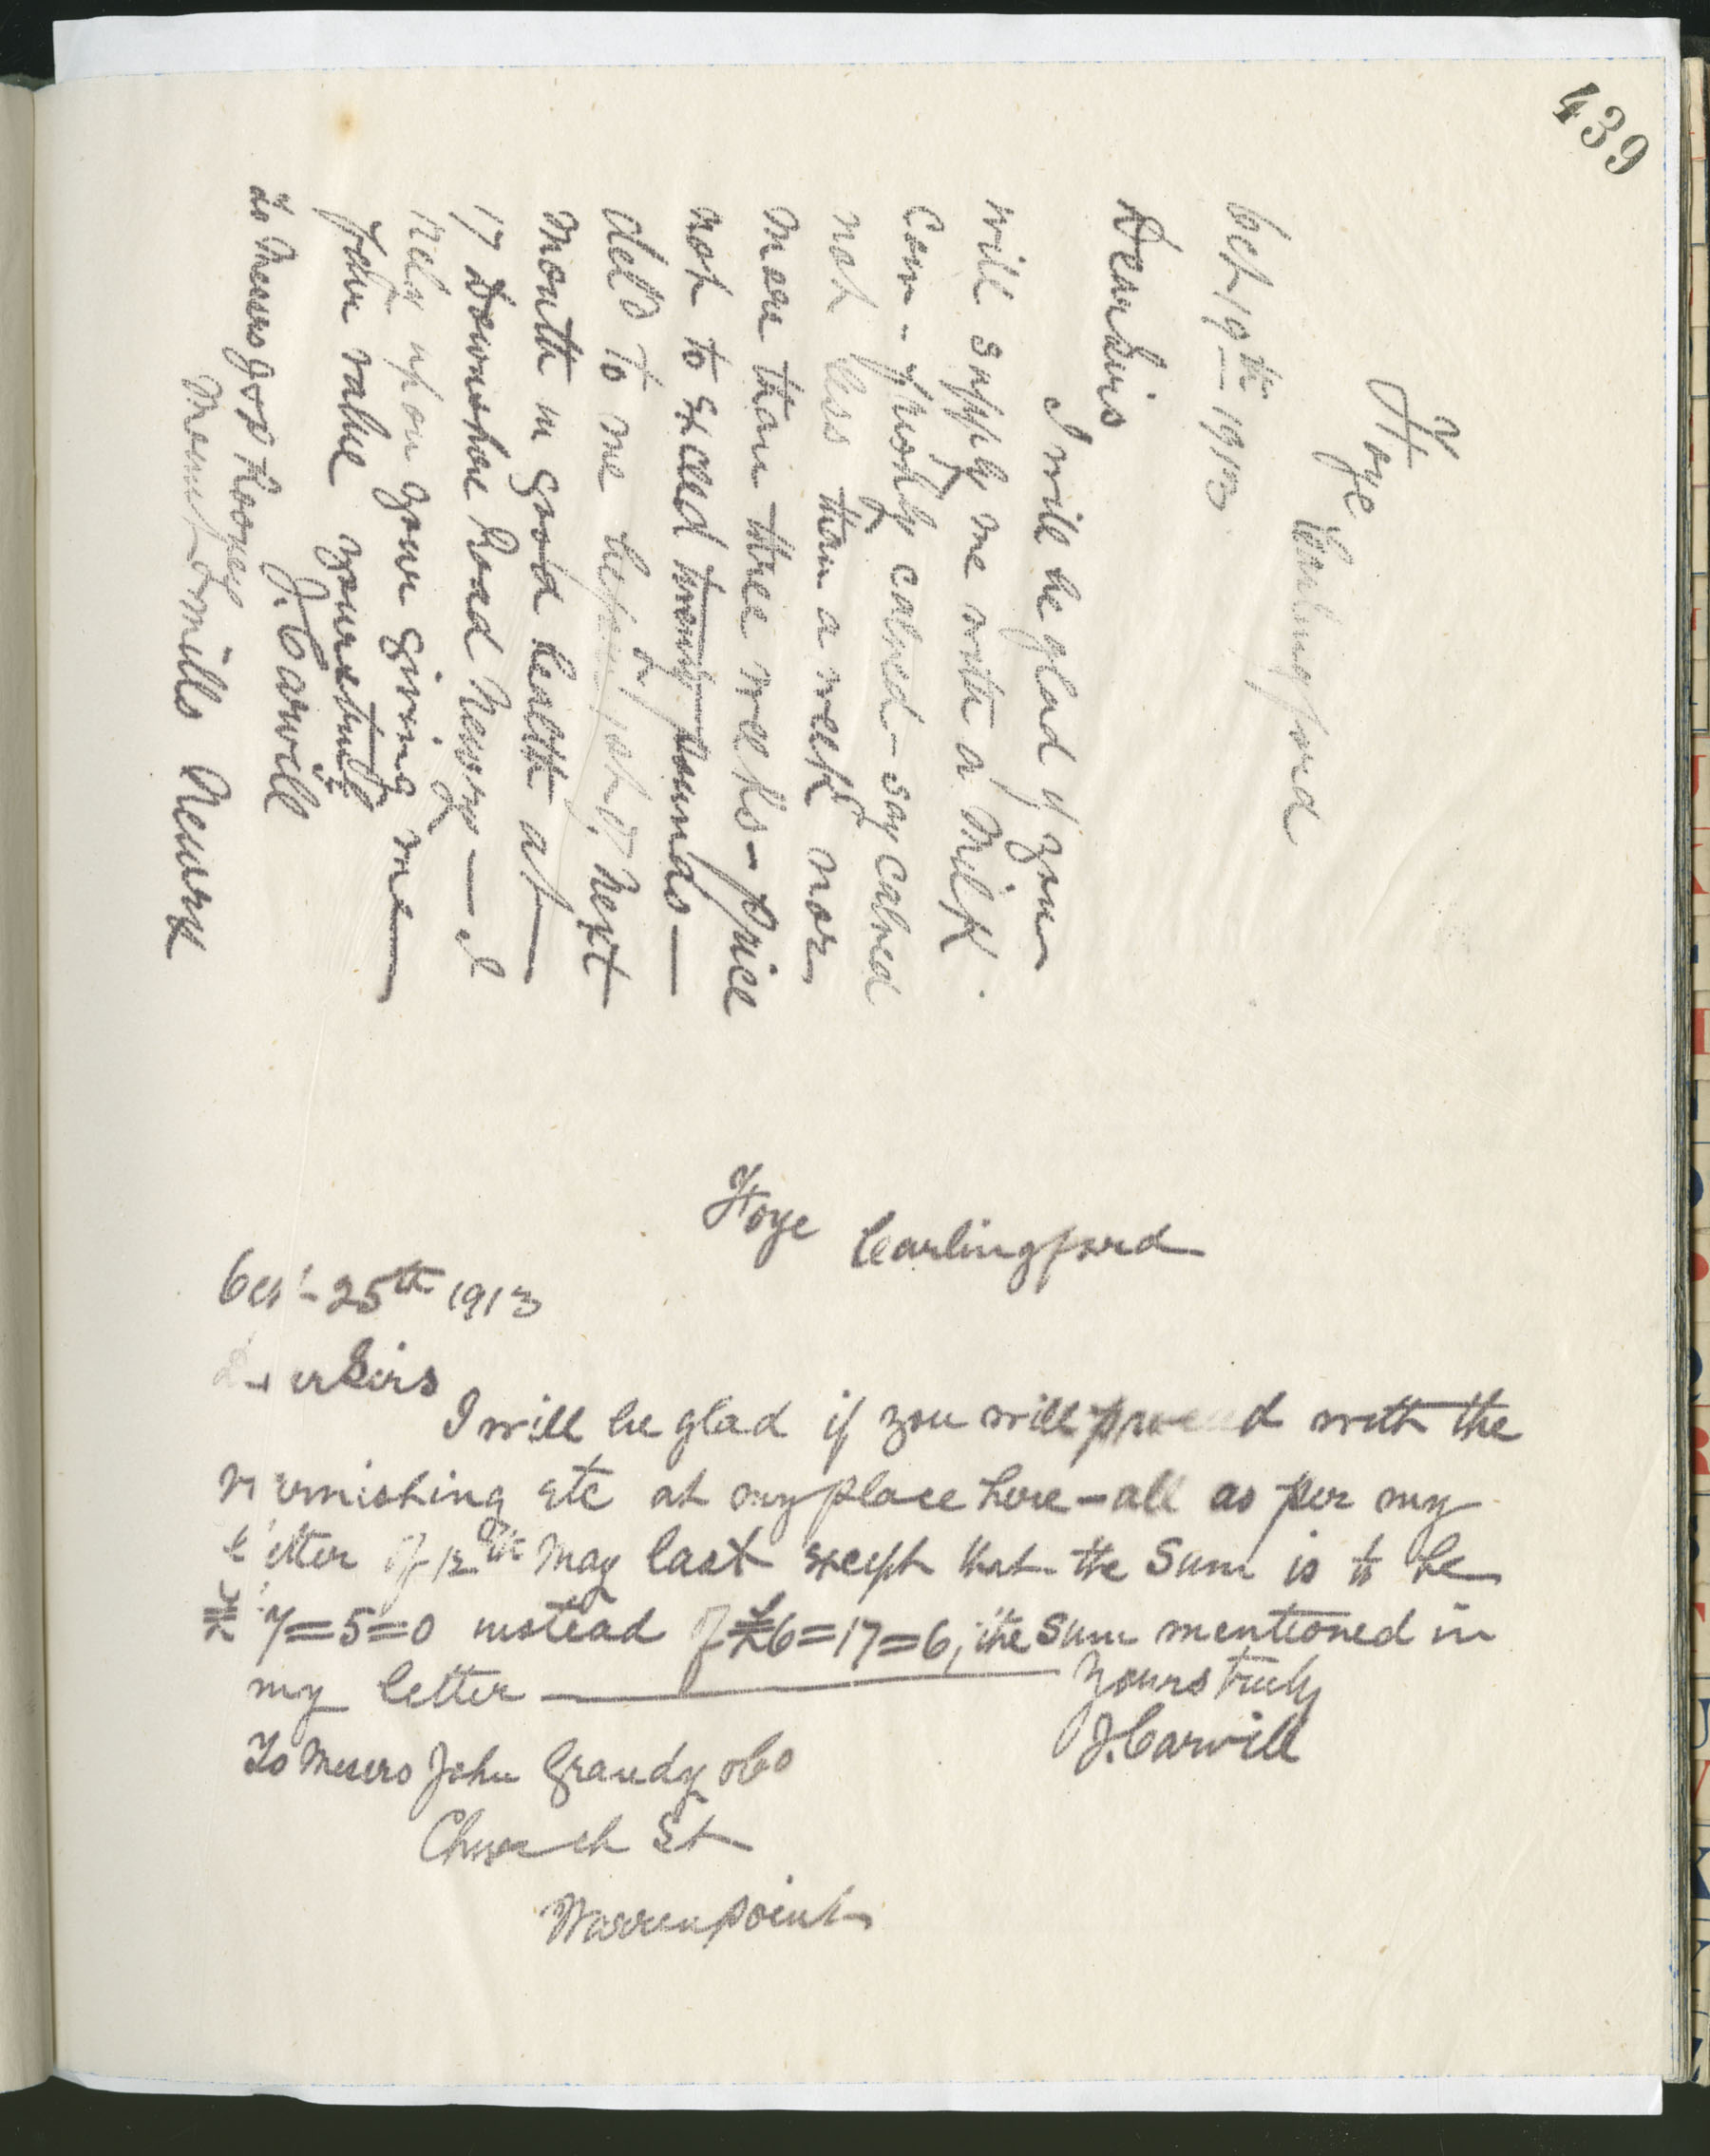 439
Hoye
Carlingford
Oct 19th 1913
Dear Sirs
I will be glad if you
will supply me with a Milk
Cow - freshly calved - say calved
not less than a week nor
more than three weeks - price
not to exceed twenty pounds -
deld to me before 1st of next
month in good health at
17 Downshire Road Newry - I
rely upon your giving me
fair value yours truly
J. Carvill
To Messrs
Mills Newry
Hoye Carlingford
Oct 25th 1913
Dear Sirs
I will be glad if you will proceed with the
varnishing etc at my place here - all as per my
letter of 12th May last except that the Sum is to be
£7=5=0 instead of £6=17=6, the sum mentioned in
my letter Yours truly
J. Carvill
To Messrs John Grandy & Co
Church St
Warrenpoint